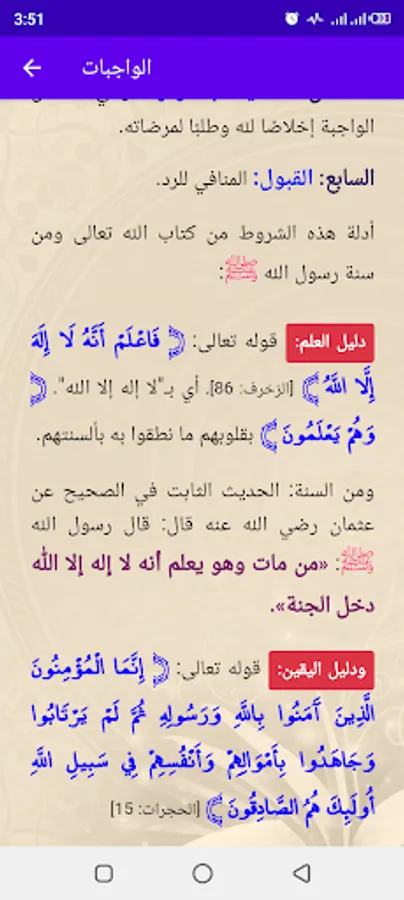 3:51
الواجبات
الواجبة إخلاصًا لله وطلبًا لمرضاته.
السابع: القبول: المنافي للرد.
أدلة هذه الشروط من كتاب الله تعالى ومن
سنة رسول الله ﷺ:
دليل العلم: قوله تعالى: ﴿فَاعْلَمْ أَنَّهُ لَا إِلَهَ
إِلَّا اللَّهُ﴾ [الزخرف: 86]. أي بـ"لا إله إلا الله". ﴿
وَهُمْ يَعْلَمُونَ﴾ بقلوبهم ما نطقوا به بألسنتهم.
ومن السنة: الحديث الثابت في الصحيح عن
عثمان رضي الله عنه قال: قال رسول الله
ﷺ: «من مات وهو يعلم أنه لا إله إلا الله
دخل الجنة».
ودليل اليقين: قوله تعالى: ﴿إِنَّمَا الْمُؤْمِنُونَ
الَّذِينَ آَمَنُوا بِاللَّهِ وَرَسُولِهِ ثُمَّ لَمْ يَرْتَابُوا
وَجَاهَدُوا بِأَمْوَالِهِمْ وَأَنْفُسِهِمْ فِي سَبِيلِ اللَّهِ
أُولَئِكَ هُمُ الصَّادِقُونَ﴾ [الحجرات: 15]